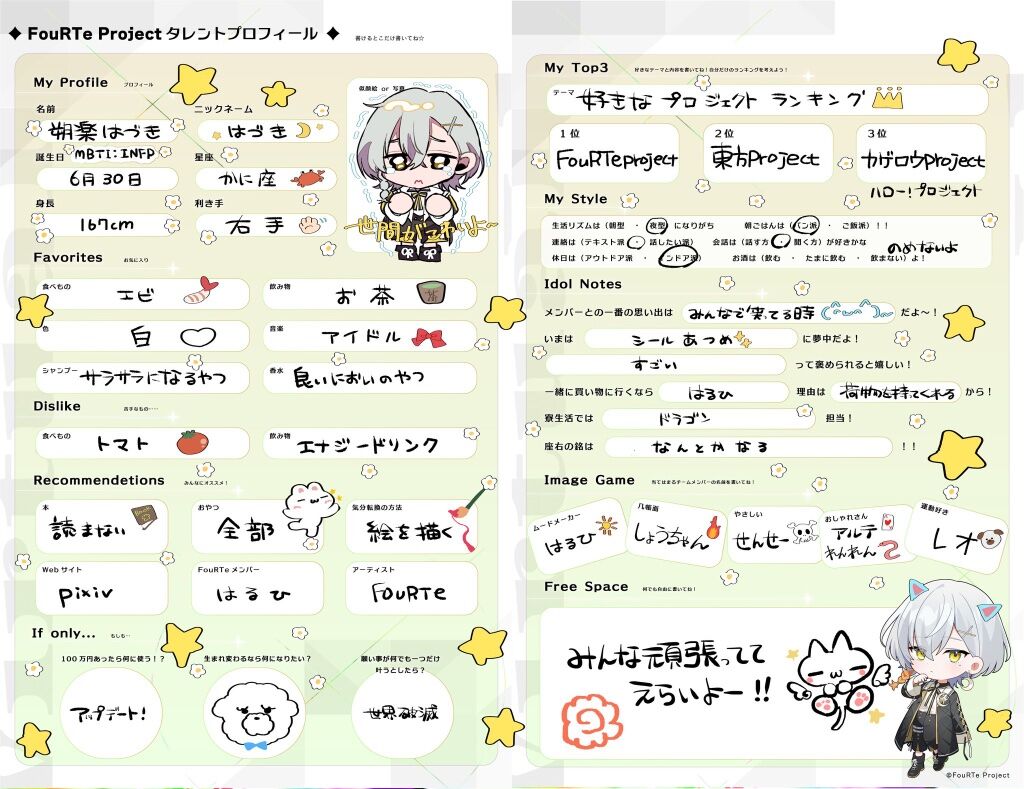 ◆ FouRTe Project タレントプロフィール ◆ 書けるとこだけ書いてね☆
My Profile プロフィール
名前
朔楽はづき
ニックネーム
はづき
誕生日 MBTI:INFP
6月30日
星座
かに座
身長
167cm
利き手
右手
似顔絵 or 写真
世間がこわいよ〜
Favorites お気に入り
食べもの エビ
飲み物 お茶
茶
色 白
音楽 アイドル
シャンプー サラサラになるやつ
香水 良いにおいのやつ
Dislike 苦手なもの‥‥
食べもの トマト
飲み物 エナジードリンク
Recommendetions みんなにオススメ！
本
読まない
Book
おやつ
全部
気分転換の方法
絵を描く
Webサイト
pixiv
FouRTeメンバー
はるひ
アーティスト
FouRTe
If only... もしも…
100万円あったら何に使う！？
アップデート!
生まれ変わるなら何になりたい？
願い事が何でも一つだけ
叶うとしたら？
世界破滅
My Top3 好きなテーマと内容を書いてね！自分だけのランキングを考えよう！
テーマ 好きなプロジェクトランキング
1位
FouRTeproject
2位
東方project
3位
カゲロウproject
ハロー!プロジェクト
My Style
生活リズムは（朝型 ・ 夜型）になりがち 朝ごはんは（パン派 ・ ご飯派）！！
連絡は（テキスト派 ・ 話したい派） 会話は（話す方 ・ 聞く方）が好きかな
休日は（アウトドア派 ・ インドア派） お酒は（飲む ・ たまに飲む ・ 飲まない）よ！
のめないよ
Idol Notes
メンバーとの一番の思い出は みんなで笑ってる時 だよ〜！
いまは シールあつめ に夢中だよ！
すごい って褒められると嬉しい！
一緒に買い物に行くなら はるひ 理由は 荷物を持ってくれる から！
寮生活では ドラゴン 担当！
座右の銘は なんとかなる ！！
Image Game 当てはまるチームメンバーの名前を書いてね！
ムードメーカー
はるひ
几帳面
しょうちゃん
やさしい
せんせー
おしゃれさん
アルテ
れんれん
運動好き
レオ
Free Space 何でも自由に書いてね！
みんな頑張ってて
えらいよー!!
©FouRTe Project